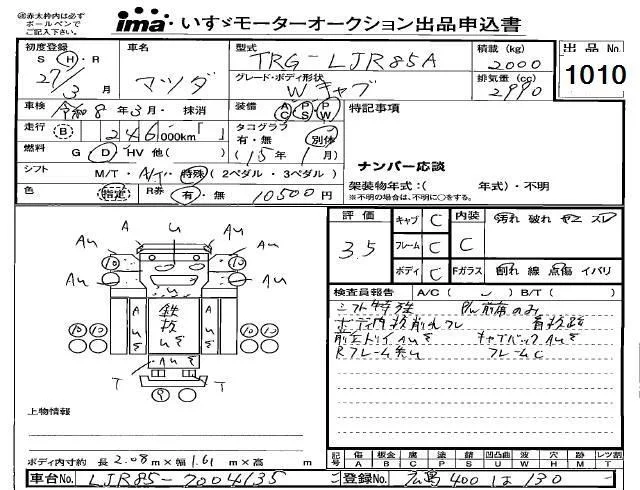 ㊟赤太枠内は必ず
ボールペンで
ご記入下さい。
ima いすゞモーターオークション出品申込書
初度登録
S・H・R
27/3月
車名
マツダ
型式
TRG-LJR85A
グレード・ボディ形状
Wキャブ
積載 (kg)
2000
排気量 (cc)
2990
出品No.
1010
車検 令和8年3月・抹消
装備 AC PS PW
特記事項
走行 B 246,000km「 」
タコグラフ
有・無 別体
(15年 1月)
燃料 G D HV 他( )
ナンバー応談
シフト M/T・A/T・特殊 (2ペダル・3ペダル)
架装物年式:( 年式)・不明
※不明の場合は、不明に○をする。
色 指定
R券 有・無 10500円
評価
3.5
キャブ C
フレーム C
ボディ C
内装 C
汚れ 破れ ヤニ スレ
Fガラス 割れ 線 点傷 イバリ
検査員報告 A/C( ) B/T( )
シフト特殊
Rフレーム
フレームC
Au A u Au
10 10
Au Au
鉄板
A A
10 10 10
T T
9
上物情報
ボディ内寸約 長 2.08m×幅 1.61m×高 m
記号
傷 板金 腐 塗 錆 凹凸曲 波 穴 跡 レツ割
A B C P S U W H M T
車台No. LJR85-7004135
登録No. 広島400は130